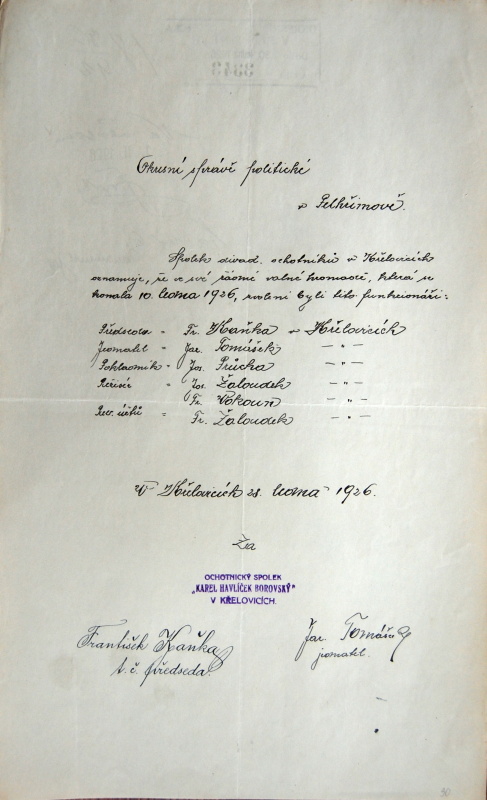 Okresní správě politické
v Pelhřimově.
Spolek divad. ochotníků v Křelovicích
oznamuje, že ve své řádné valné hromadě, která se
konala 10. ledna 1926, zvoleni byli tito funkcionáři:
Předseda = Fr. Kaňka v Křelovicích
Jednatel = Jar. Tomášek — „ —
Pokladník = Jos. Průcha — „ —
Režisér = Jos. Žaloudek — „ —
Fr. Vokoun — „ —
Rev. účtů = Fr. Žaloudek — „ —
V Křelovicích 28. ledna 1926.
Za
OCHOTNICKÝ SPOLEK
„KAREL HAVLÍČEK BOROVSKÝ"
V KŘELOVICÍCH.
František Kaňka
t. č. předseda.
Jar. Tomášek
jednatel.